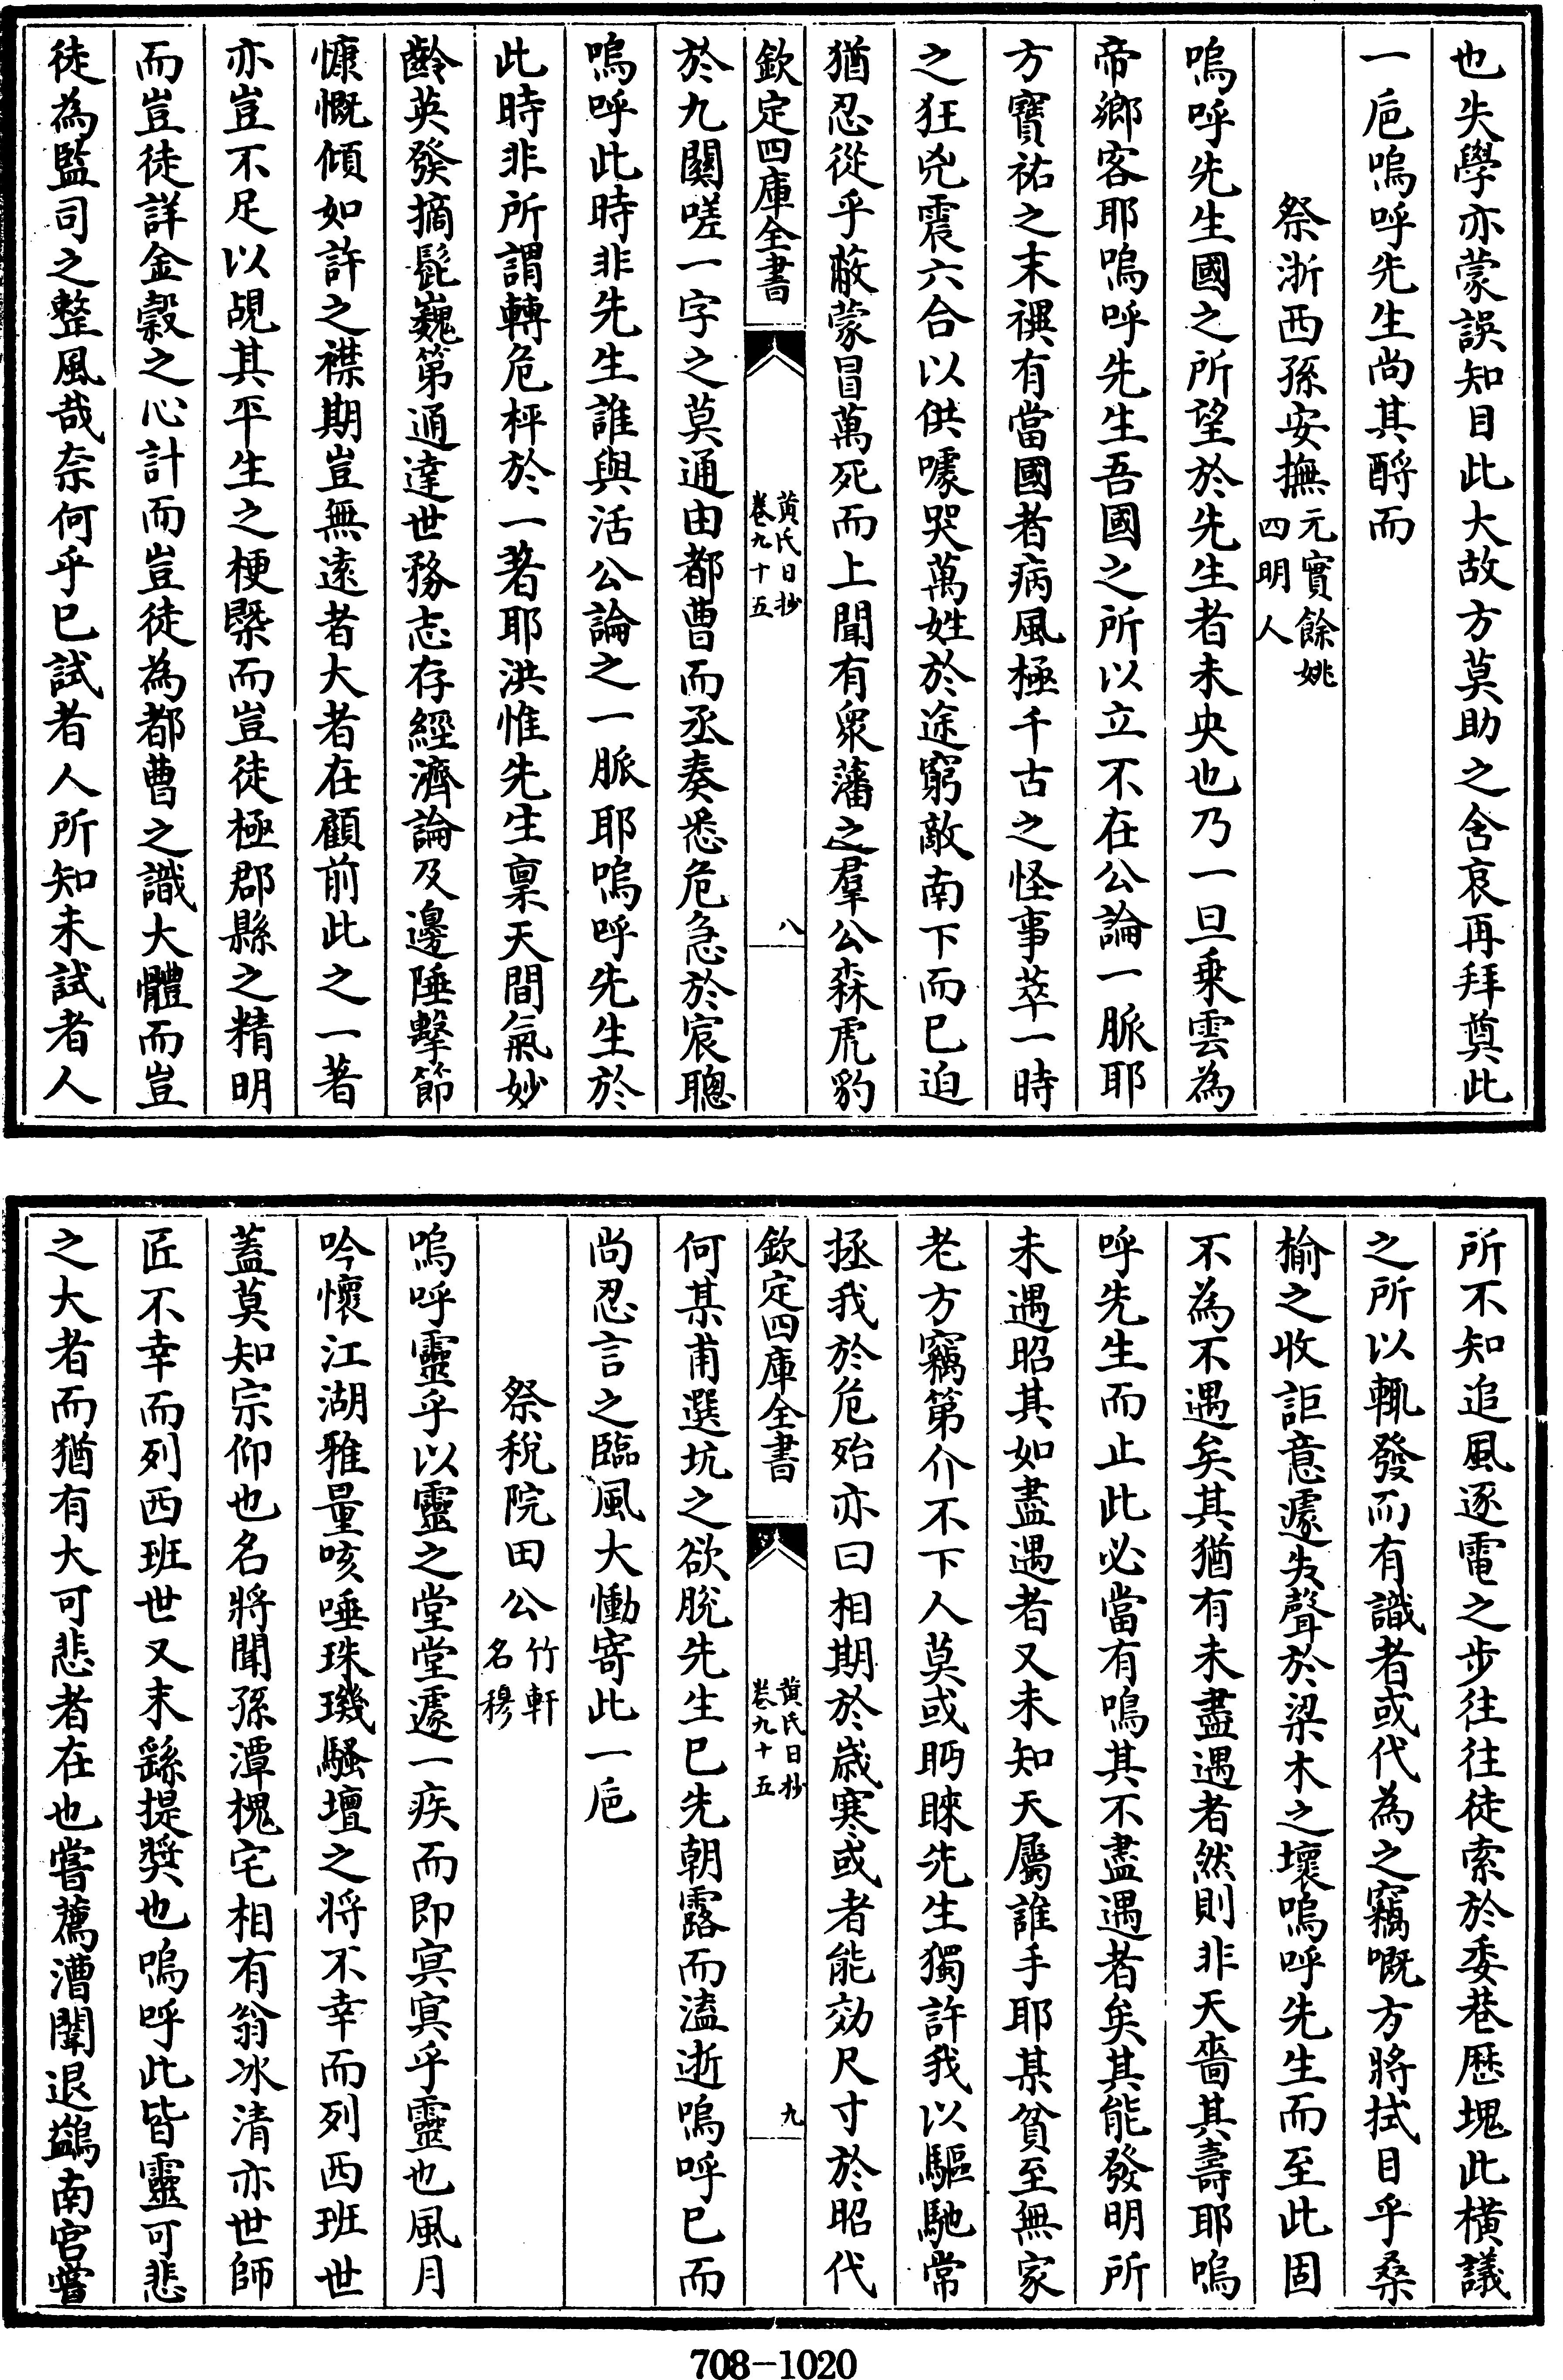 也失學亦蒙誤知目此大故方莫助之含哀再拜奠此
一巵嗚呼先生尚其酹而
祭浙西孫安撫元實餘姚四明人
嗚呼先生國之所望於先生者未央也乃一旦乗雲為
帝鄉客耶嗚呼先生吾國之所以立不在公論一脈耶
方寳祐之末禩有當國者病風極千古之怪事萃一時
之狂兇震六合以供噱哭萬姓於途窮敵南下而已迫
猶忍從乎蔽蒙冒萬死而上聞有衆藩之羣公森虎豹
欽定四庫全書
黃氏日抄
卷九十五
八
於九關嗟一字之莫通由都曹而丞奏悉危急於宸聰
嗚呼此時非先生誰與活公論之一脈耶嗚呼先生於
此時非所謂轉危枰於一著耶洪惟先生禀天間氣妙
齡英發摘髭巍第通達世務志存經濟論及邊陲擊節
慷慨傾如許之襟期豈無遠者大者在顧前此之一著
亦豈不足以覘其平生之梗槩而豈徒極郡縣之精明
而豈徒詳金糓之心計而豈徒為都曹之識大體而豈
徒為監司之整風哉奈何乎已試者人所知未試者人
所不知追風逐電之步往往徒索於委巷歴塊此橫議
之所以輒發而有識者或代為之竊嘅方將拭目乎桑
榆之收詎意遽失聲於梁木之壞嗚呼先生而至此固
不為不遇矣其猶有未盡遇者然則非天嗇其壽耶嗚
呼先生而止此必當有鳴其不盡遇者矣其能發明所
未遇昭其如盡遇者又未知天屬誰手耶某貧至無家
老方竊第介不下人莫或眄睞先生獨許我以驅馳常
拯我於危殆亦曰相期於歳寒或者能効尺寸於昭代
欽定四庫全書
黃氏日抄
卷九十五
九
何某甫選坑之欲脫先生已先朝露而溘逝嗚呼已而
尚忍言之臨風大慟寄此一巵
祭稅院田公竹軒名穆
嗚呼靈乎以靈之堂堂遽一疾而即㝠㝠乎靈也風月
吟懷江湖雅量咳唾珠璣騷壇之將不幸而列西班世
蓋莫知宗仰也名將聞孫潭槐宅相有翁冰清亦世師
匠不幸而列西班世又末繇提獎也嗚呼此皆靈可悲
之大者而猶有大可悲者在也嘗薦漕闈退鷁南宮嘗
708-1020